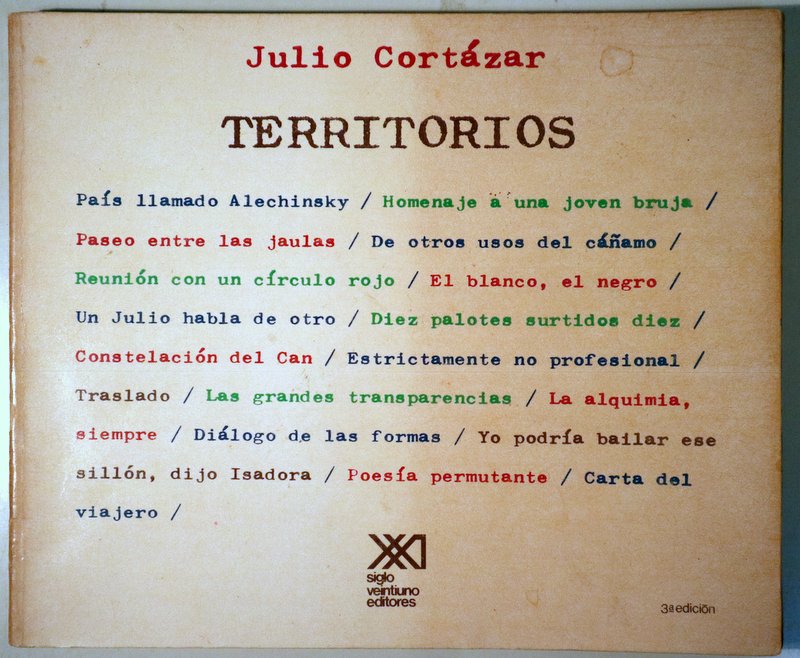 Julio Cortázar
TERRITORIOS
País llamado Alechinsky / Homenaje a una joven bruja /
Paseo entre las jaulas / De otros usos del cáñamo /
Reunión con un círculo rojo / El blanco, el negro /
Un Julio habla de otro / Diez palotes surtidos diez /
Constelación del Can / Estrictamente no profesional /
Traslado / Las grandes transparencias / La alquimia,
siempre / Diálogo de las formas / Yo podría bailar ese
sillón, dijo Isadora / Poesía permutante / Carta del
viajero /
XXI
siglo
veintiuno
editores
3ª edición